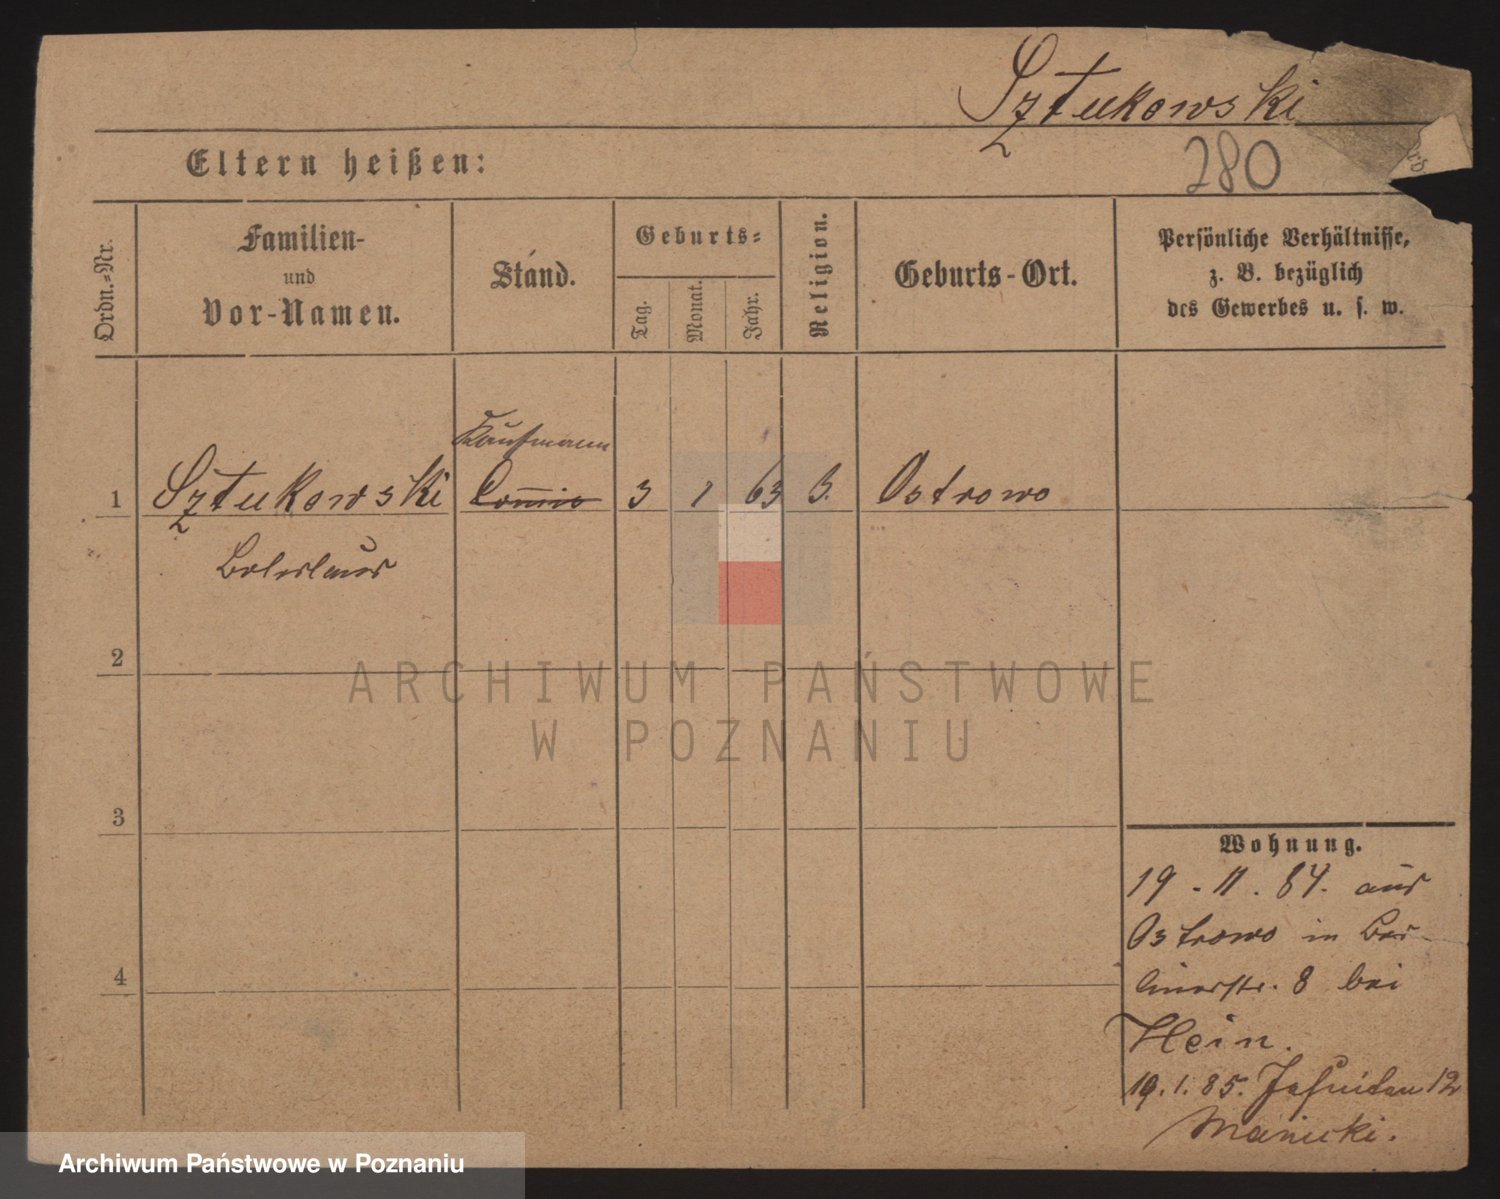 Sztukowski
280
Eltern heißen:
Ordn.-Nr.
Familien-
und
Vor-Namen.
Stand.
Geburts-
Tag.
Monat.
Jahr.
Religion.
Geburts-Ort.
Persönliche Verhältnisse,
z. B. bezüglich
des Gewerbes u. s. w.
Kaufmann
1 Sztukowski Commis 3 1 63 Ostrowo
Boleslaus
2
3
4
Wohnung.
19. 11. 84. aus
Ostrowo in Ber-
linerstr. 8 bei
Hein.
19. 1. 85. Jesuiten 12
ARCHIWUM PAŃSTWOWE
W POZNANIU
Archiwum Państwowe w Poznaniu